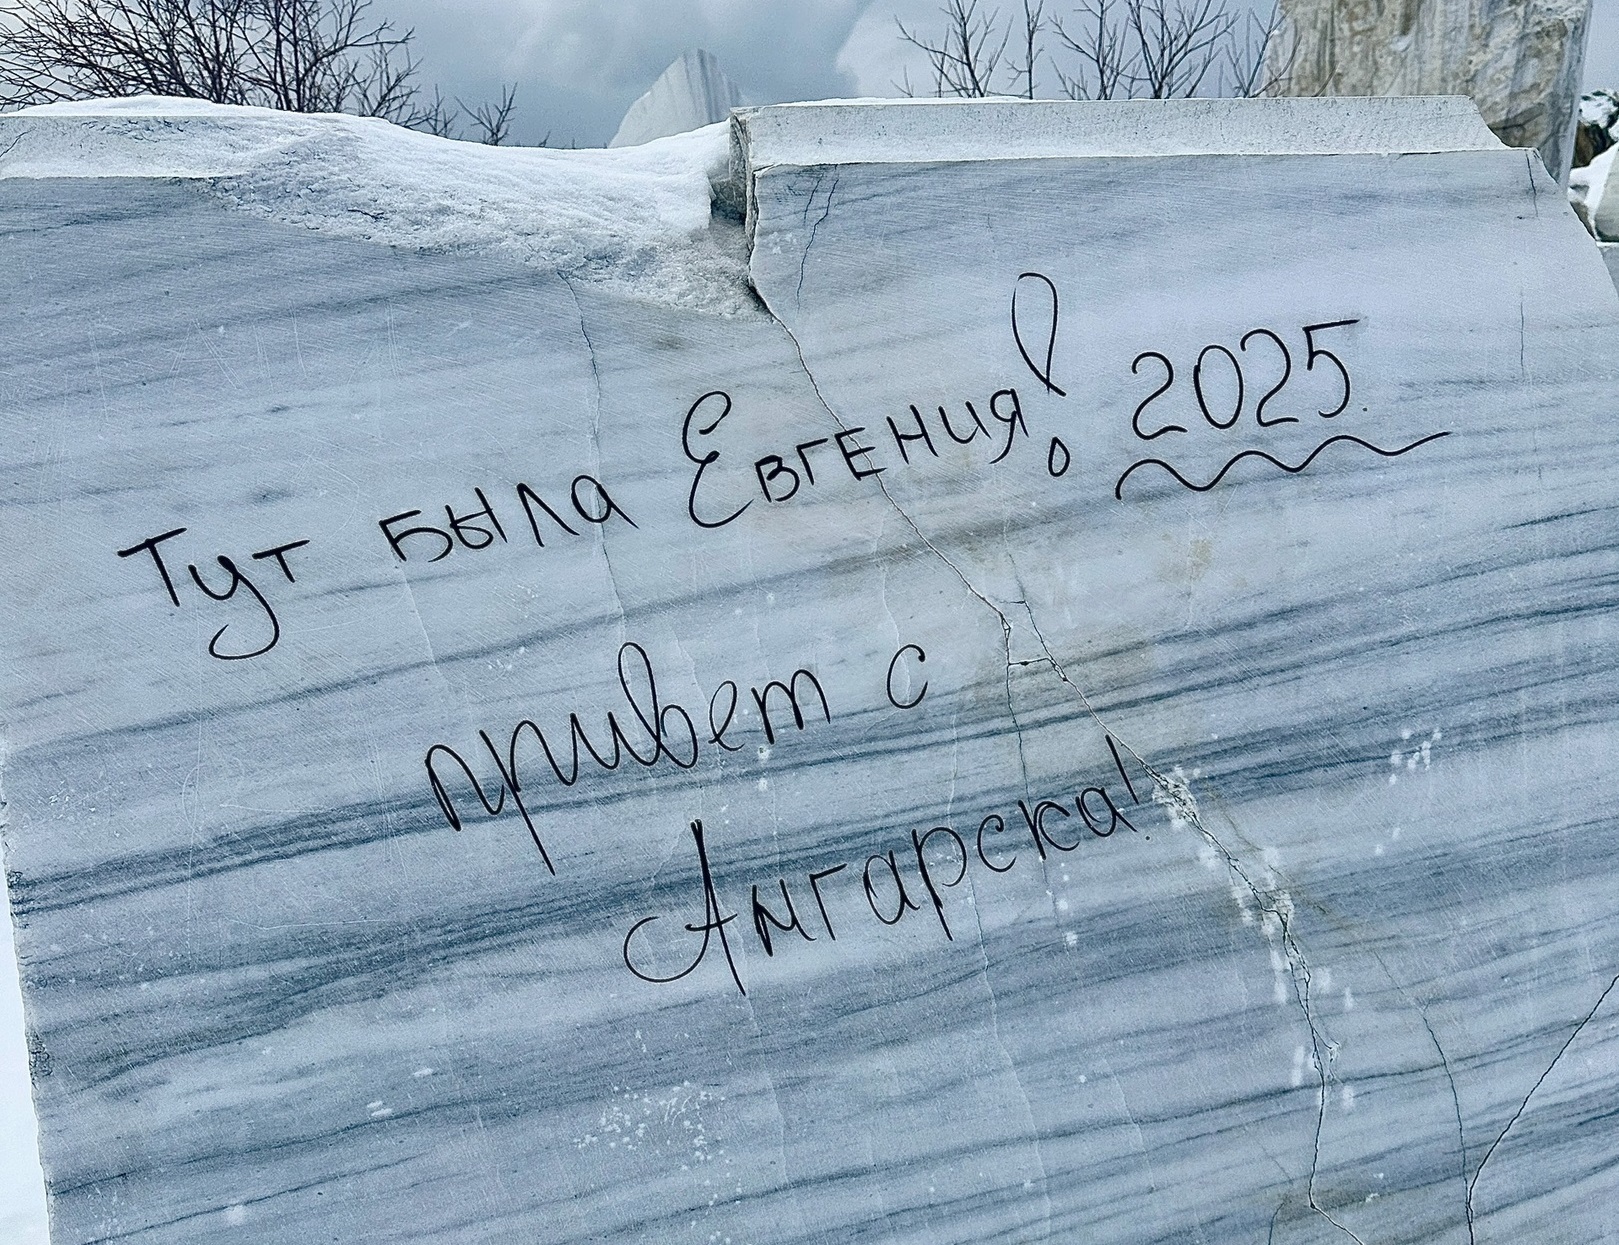 Тут была Евгения! 2025
привет с
Ангарска!